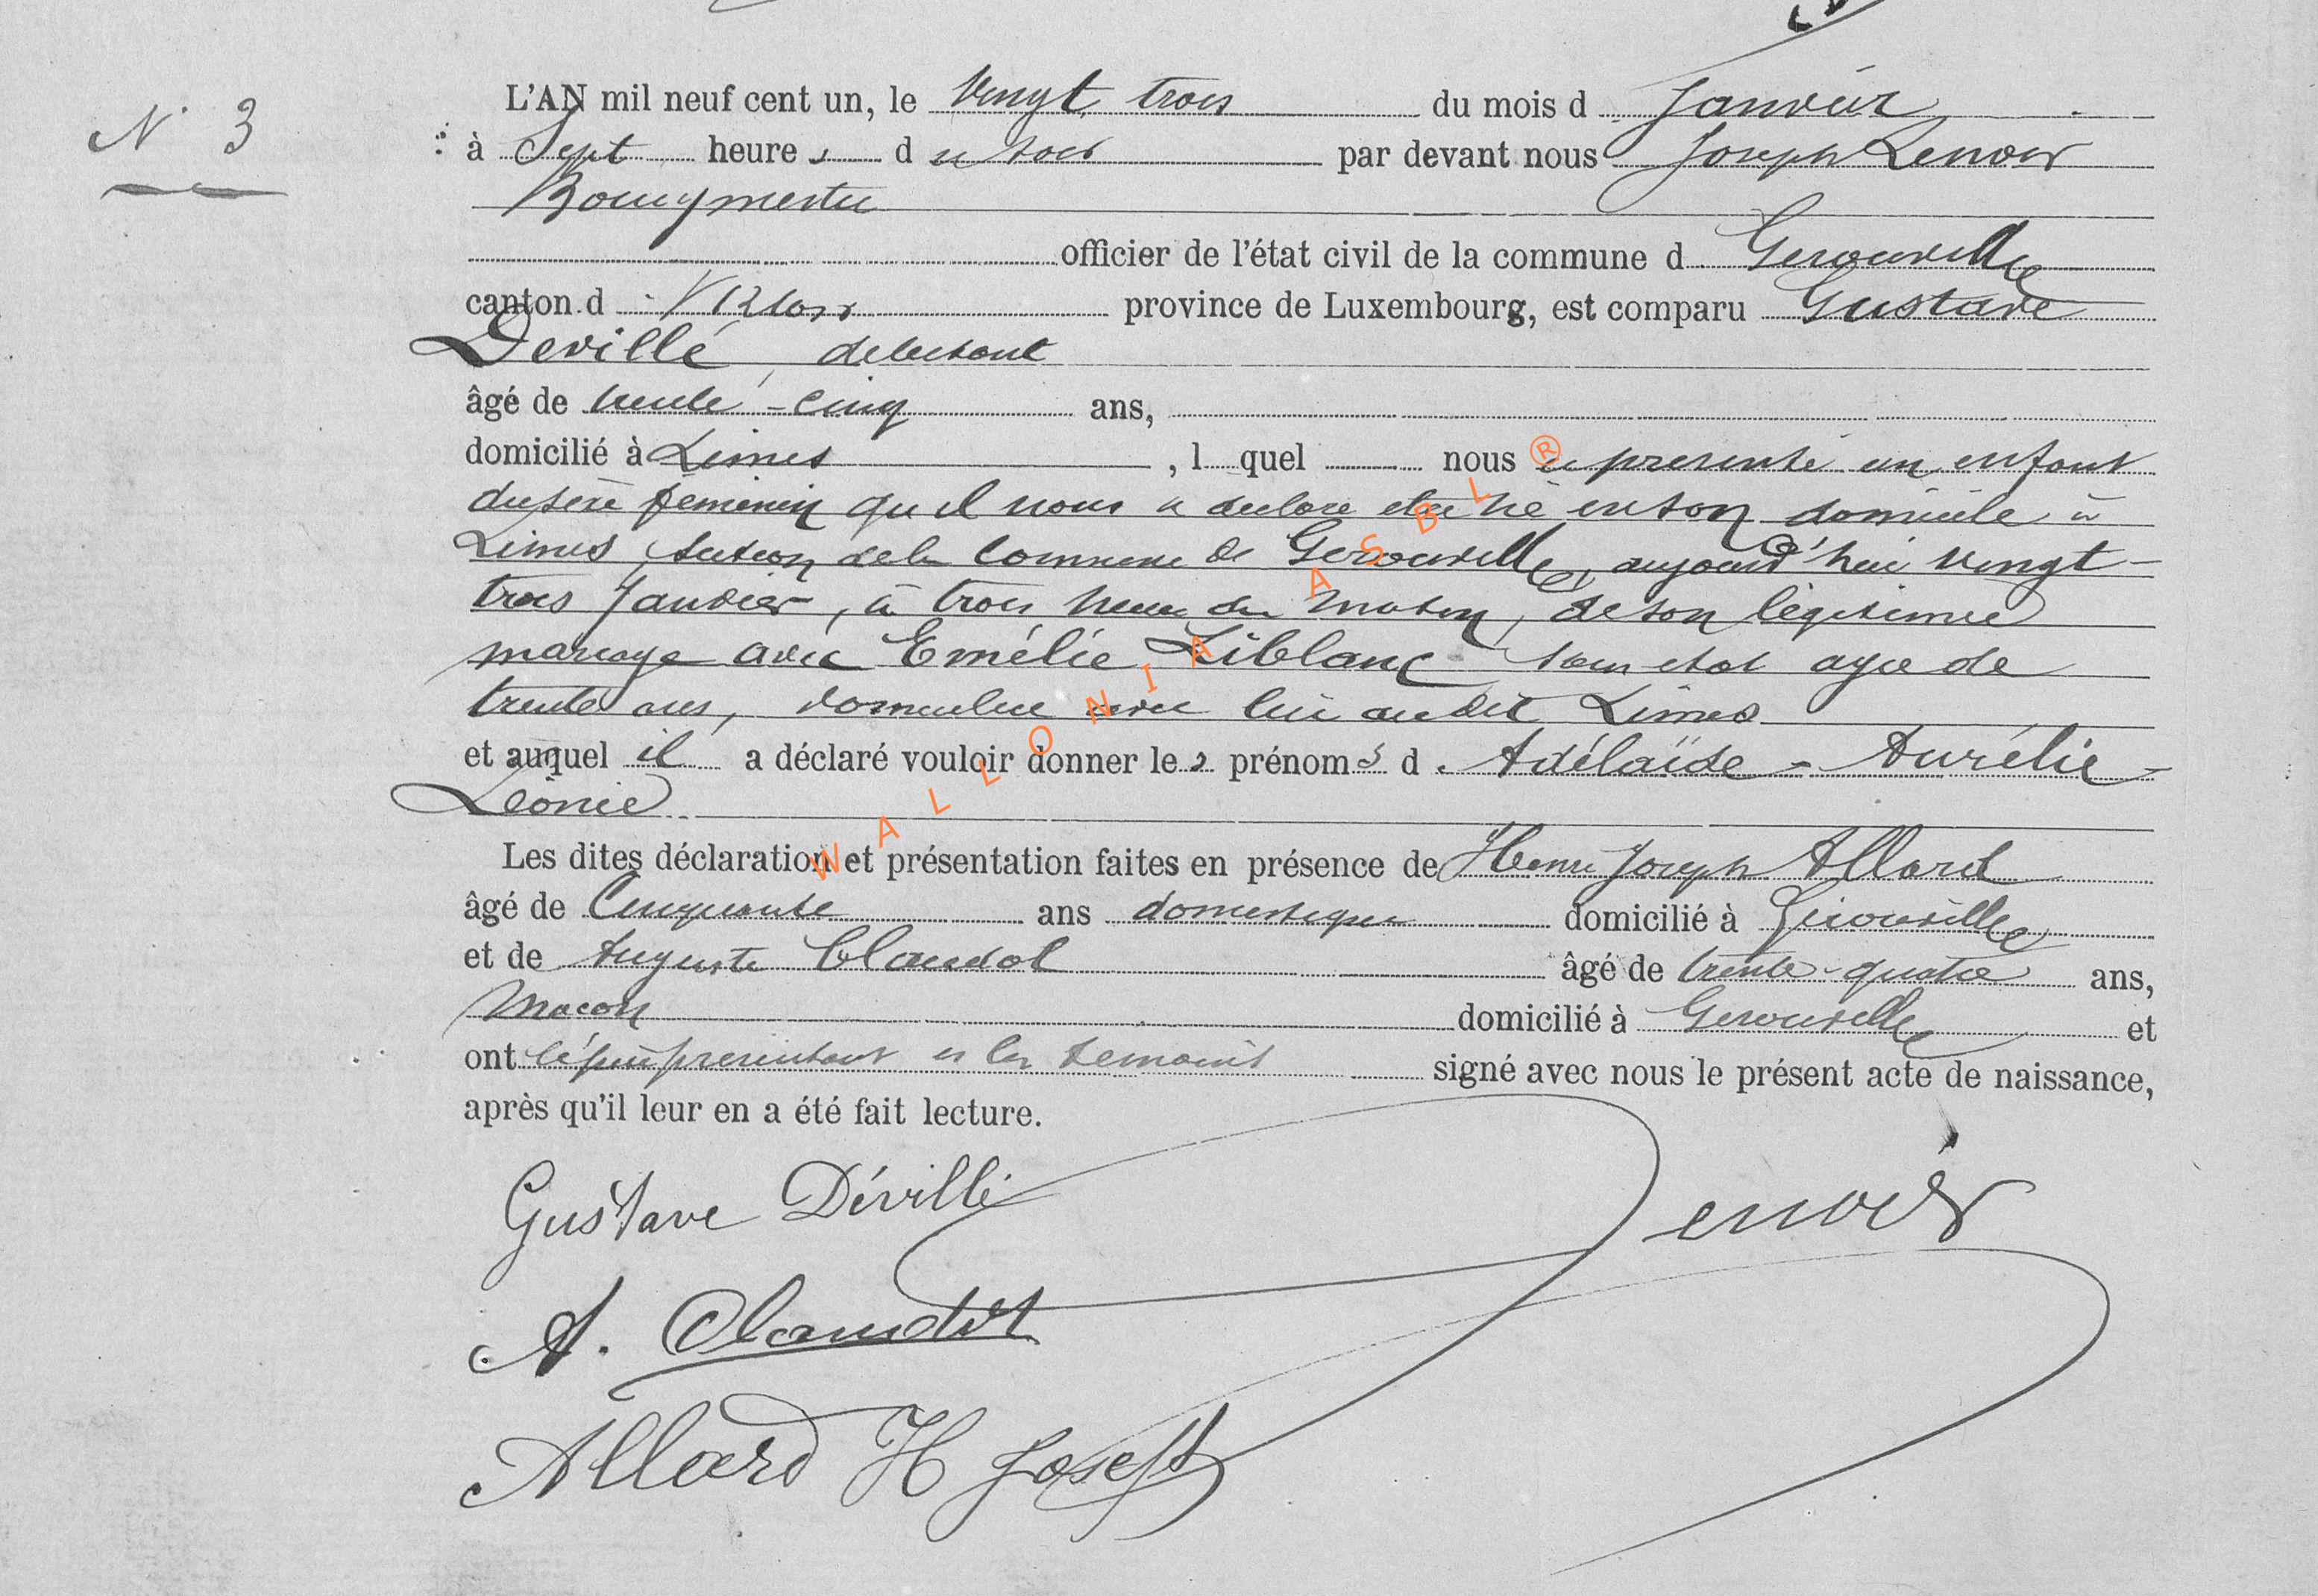 N° 3
L'AN mil neuf cent un, le vingt trois du mois d Janvier
à Sept heures du soir par devant nous Joseph Lenoir
Bourgmestre
officier de l'état civil de la commune d Gerouville
canton d Virton province de Luxembourg, est comparu Gustave
Devillé, debutant
âgé de trente-cinq ans,
domicilié à Limes, l quel nous a presenté un enfant
du sexe feminin qu'il nous a declaré etre né en son domicile à
Limes, section de la commune de Gerouville, aujourd'hui vingt-
trois Janvier, à trois heures du matin, de son légitime
mariage avec Emélie Liblanc sans etat agée de
trente ans, domiciliée avec lui au dit Limes
et auquel il a déclaré vouloir donner les prénoms d Adélaïde-Aurélie-
Léonie
Les dites déclaration et présentation faites en présence de Henri Joseph Allard
âgé de Cinquante ans domestique domicilié à Gérouville
et de Auguste Claudot âgé de trente-quatre ans,
Macon domicilié à Gerouville et
ont le père presentant et les temoins signé avec nous le présent acte de naissance,
après qu'il leur en a été fait lecture.
Gustave Dévillé Lenoir
A. Claudot
Allard H Joseph
WALLONIA ASBL ®